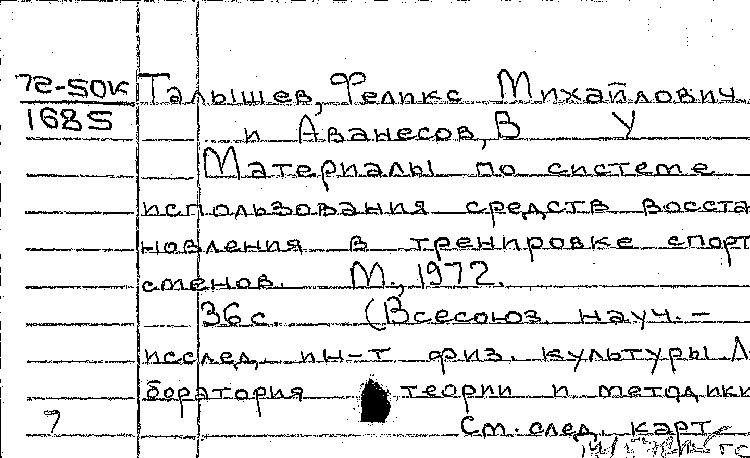 72-50К
1685
Талышев, Феликс Михайлович
и Аванесов, В У
Материалы по системе
использования средств восста
новления в тренировке спорт
сменов. М., 1972.
36 с. (Всесоюз. науч.-
исслед. ин-т физ. культуры. Л
боратория теории и методики
7 См. след. карт